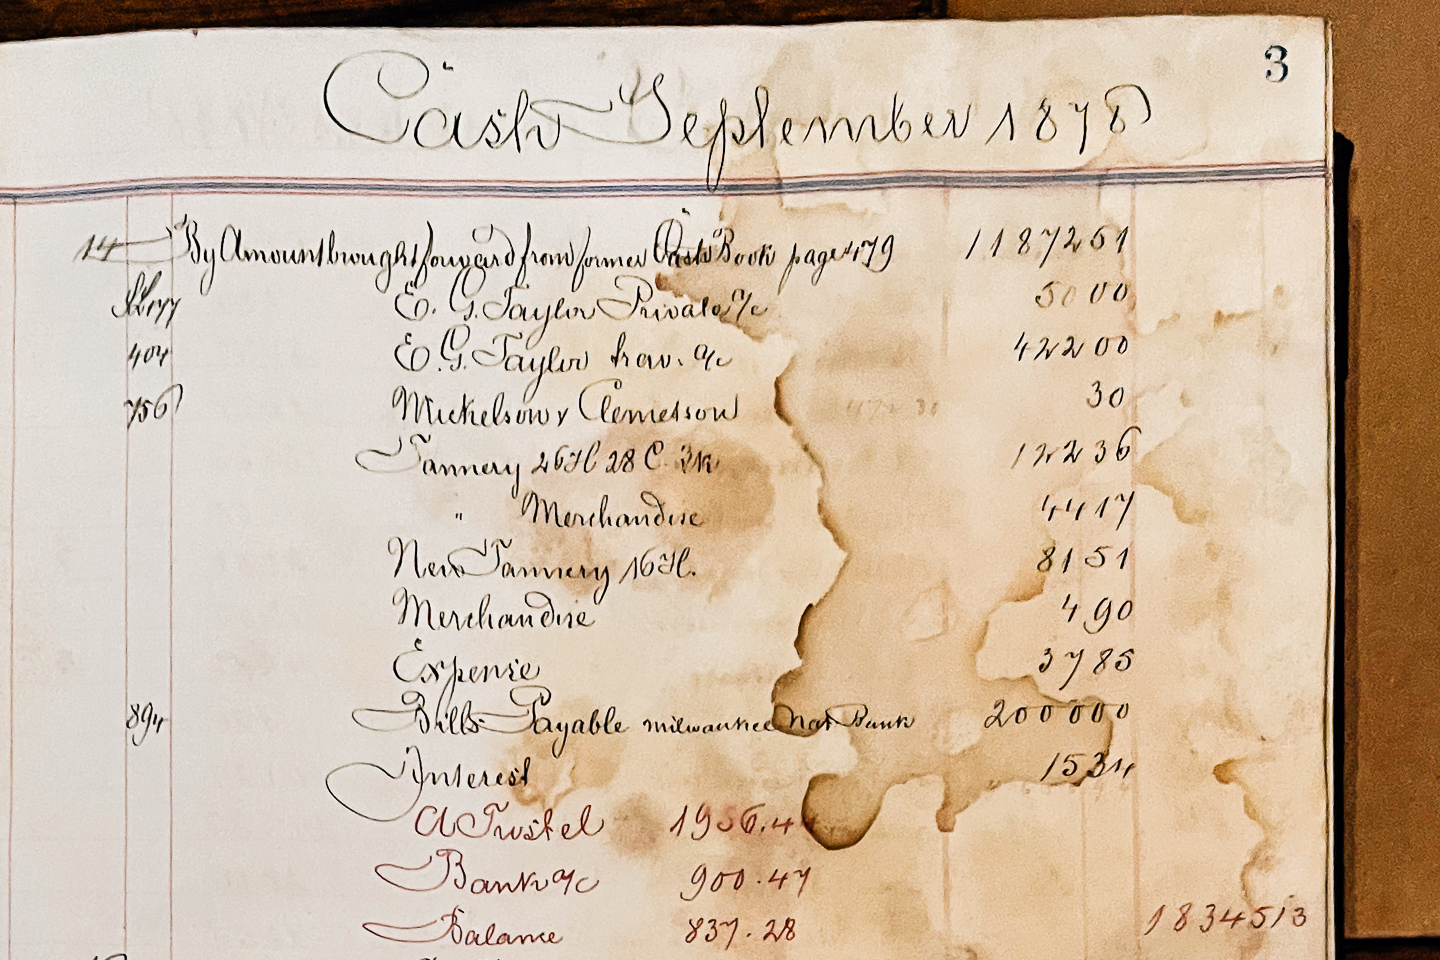 3
Cash September 1878
14 By Amount brought forward from former Cash Book page 179 1187261
177 E. G. Taylor Private a/c 5000
404 E. G. Taylor trav. a/c 42200
756 Mickelson & Clemetson 30
Tannery 26H 28C 3k 12236
" Merchandise 4417
New Tannery 16H. 8151
Merchandise 490
Expense 3785
894 Bills Payable Milwaukee Nat Bank 200000
Interest 1534
A Trostel 1956.44
Bank a/c 900.47
Balance 837.28 1834513